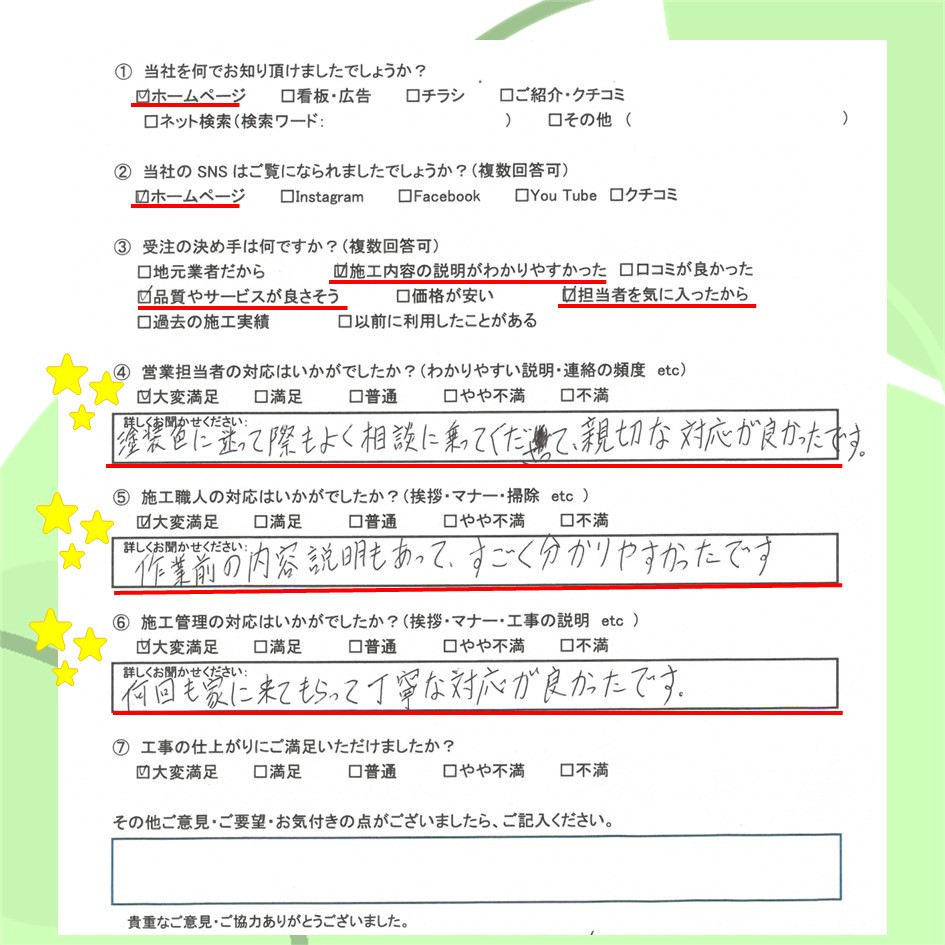 ① 当社を何でお知り頂けましたでしょうか？
☑ホームページ　□看板・広告　□チラシ　□ご紹介・クチコミ
□ネット検索（検索ワード:　　　）　□その他　（　　　）
② 当社の SNS はご覧になられましたでしょうか？（複数回答可）
☑ホームページ　□Instagram　□Facebook　□You Tube　□クチコミ
③ 受注の決め手は何ですか？（複数回答可）
□地元業者だから　☑施工内容の説明がわかりやすかった　□口コミが良かった
☑品質やサービスが良さそう　□価格が安い　☑担当者を気に入ったから
□過去の施工実績　□以前に利用したことがある
④ 営業担当者の対応はいかがでしたか？（わかりやすい説明・連絡の頻度　etc）
☑大変満足　□満足　□普通　□やや不満　□不満
詳しくお聞かせください:
塗装色に迷って際もよく相談に乗ってくださって、親切な対応が良かったです。
⑤ 施工職人の対応はいかがでしたか？（挨拶・マナー・掃除　etc ）
☑大変満足　□満足　□普通　□やや不満　□不満
詳しくお聞かせください:
作業前の内容説明もあって、すごく分かりやすかったです
⑥ 施工管理の対応はいかがでしたか？（挨拶・マナー・工事の説明　etc ）
☑大変満足　□満足　□普通　□やや不満　□不満
詳しくお聞かせください:
何回も家に来てもらって丁寧な対応が良かったです。
⑦ 工事の仕上がりにご満足いただけましたか？
☑大変満足　□満足　□普通　□やや不満　□不満
その他ご意見・ご要望・お気付きの点がございましたら、ご記入ください。
貴重なご意見・ご協力ありがとうございました。